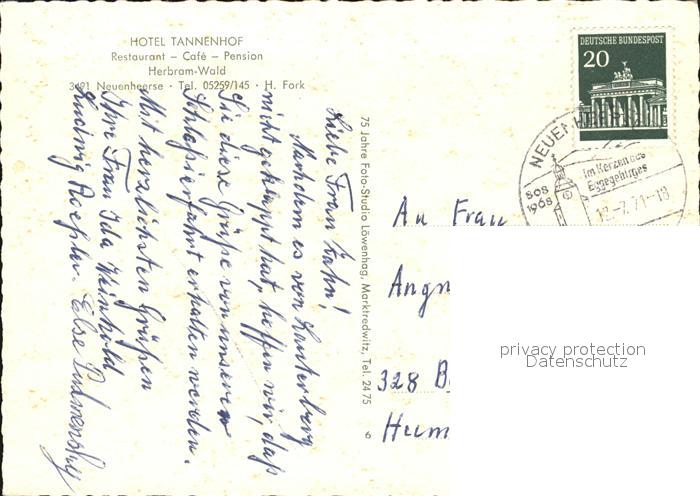 HOTEL TANNENHOF
Restaurant – Café – Pension
Herbram-Wald
3491 Neuenheerse · Tel. 05259/145 · H. Fork
Liebe Frau Hahn!
Nachdem es von Lauterberg
nicht geklappt hat, hoffen wir, daß
Sie diese Grüße von unserer
erhalten werden.
Mit herzlichsten Grüßen
Ihre Frau Ida Weinhold
Ludwig Else
75 Jahre Foto-Studio Löwenhag, Marktredwitz, Tel. 2475
6
DEUTSCHE BUNDESPOST
20
NEUEN
Im Herzen des
Eggegebirges
808
1968
12.-7.71-18
An Frau
Angn
328 B
Hum
privacy protection
Datenschutz